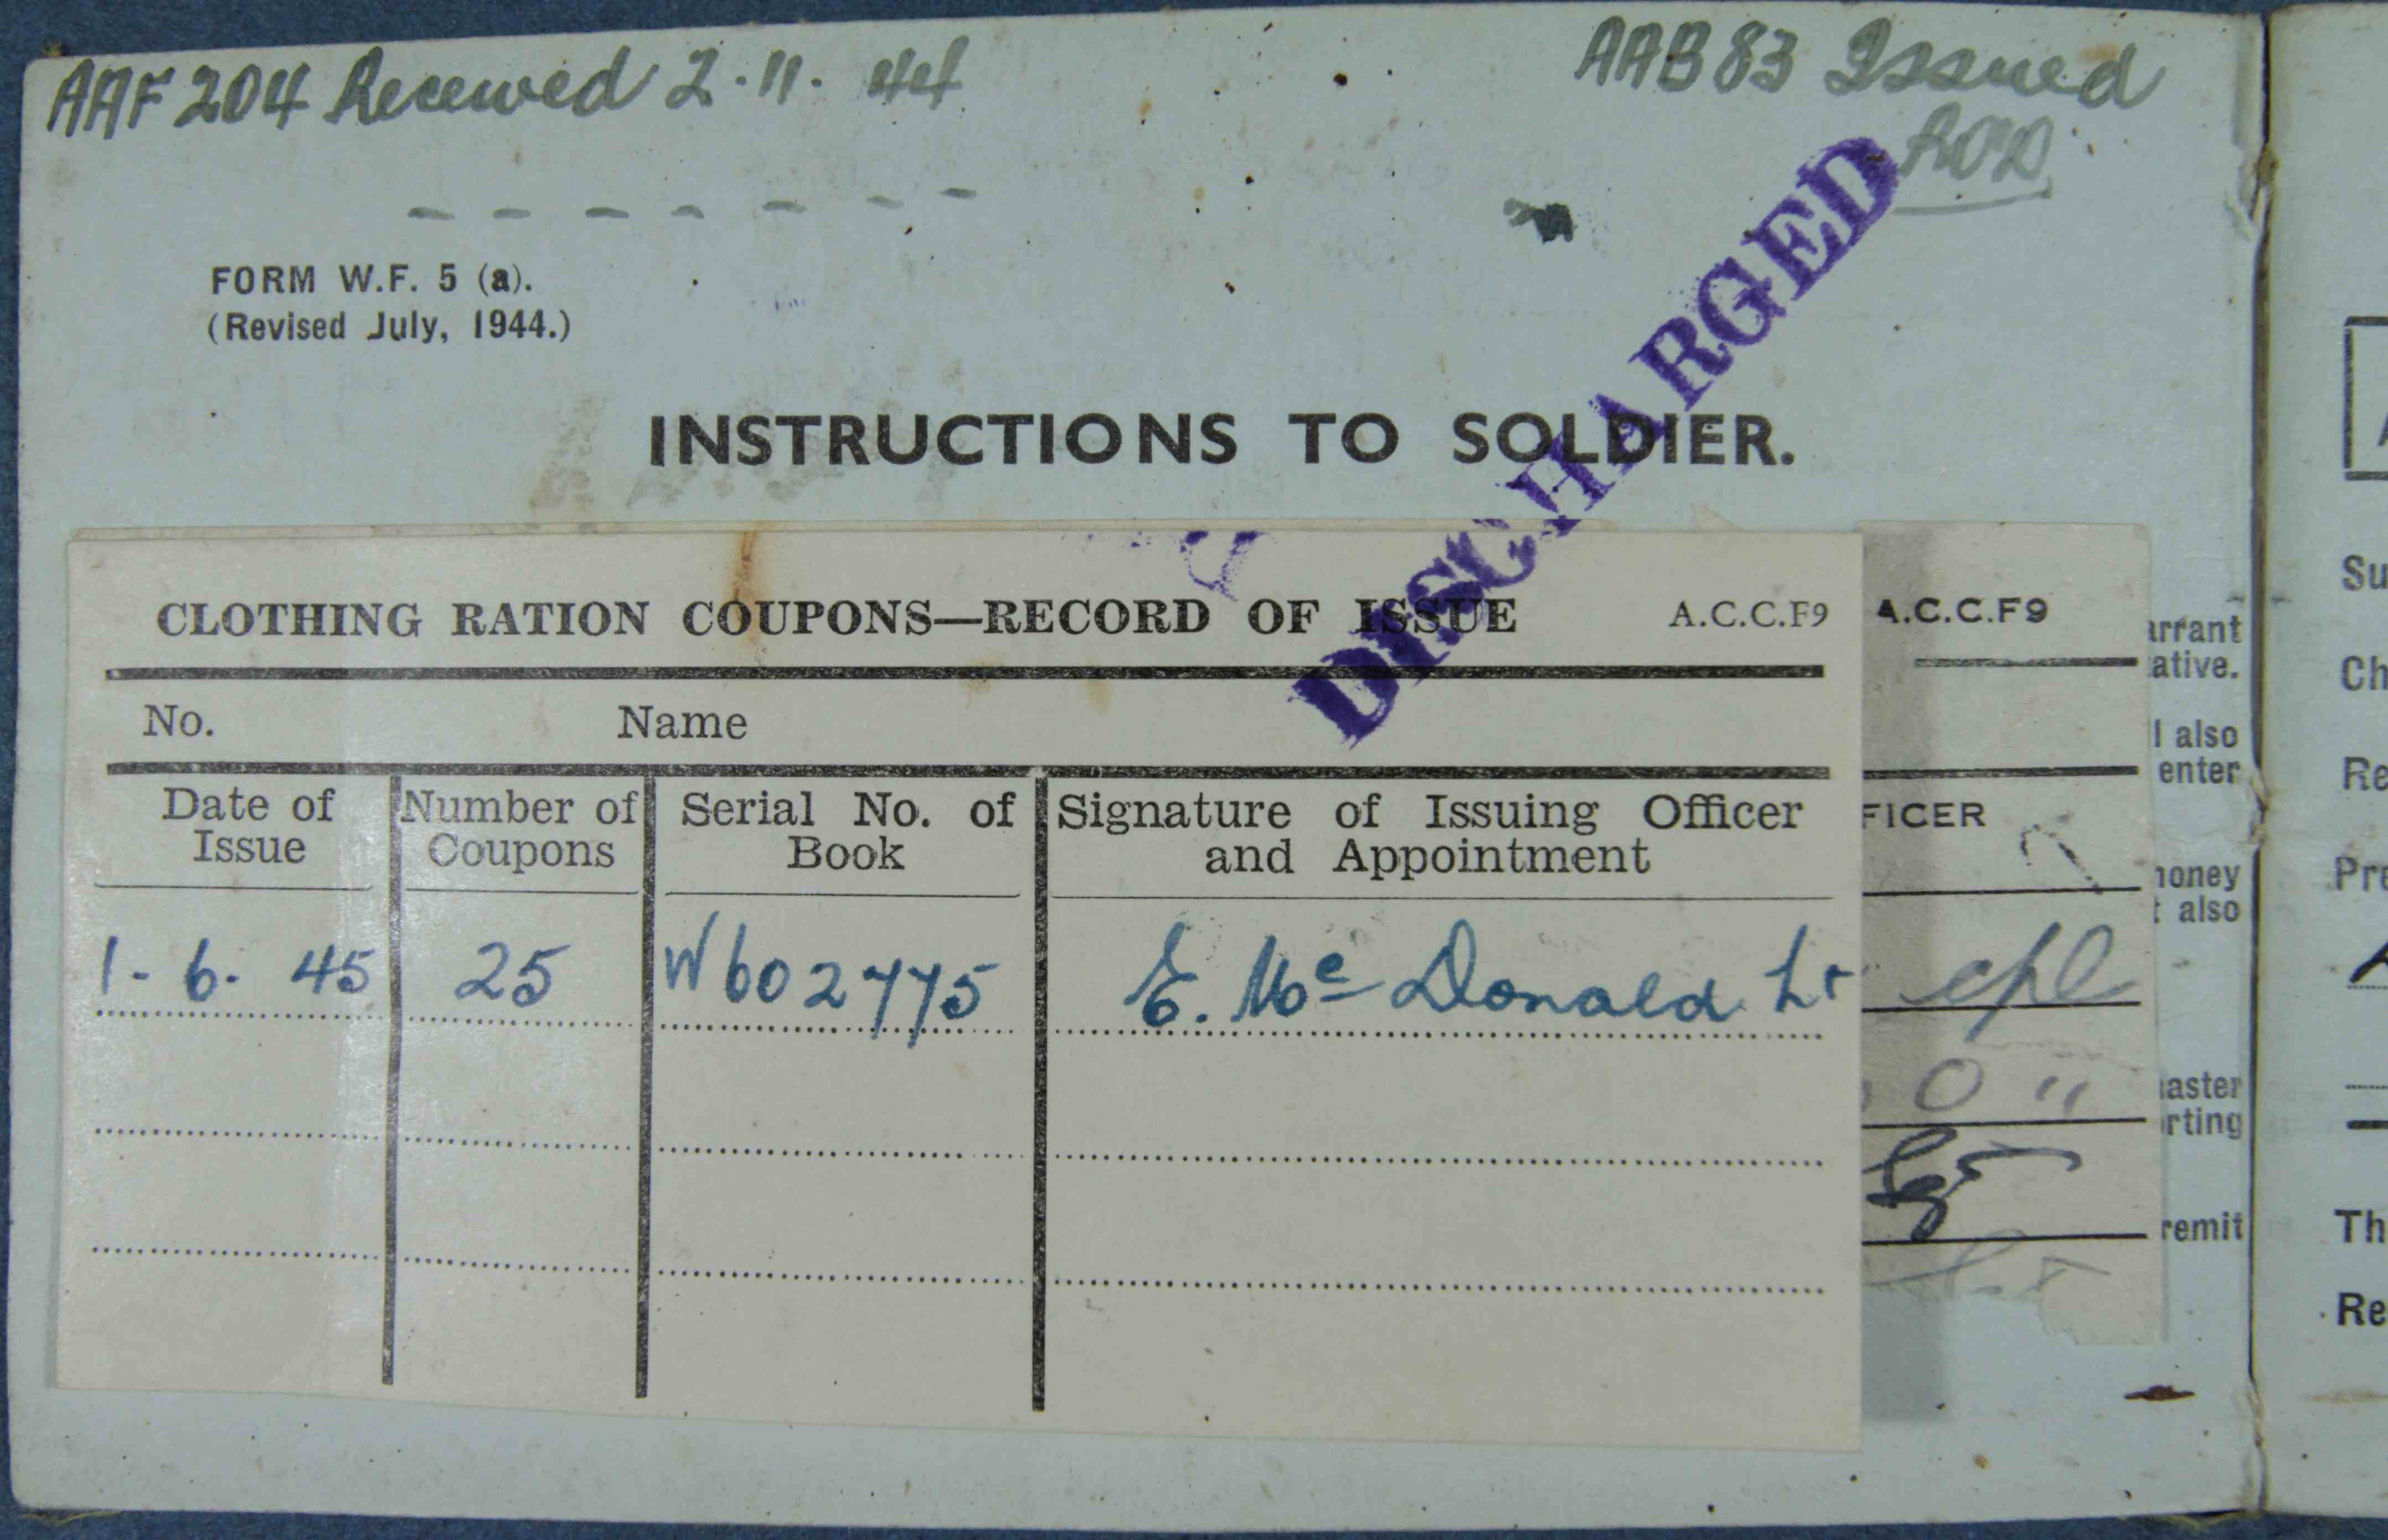 AAF 204 Received 2.11.44
AAB 83 Issued
FORM W.F. 5 (a).
(Revised July, 1944.)
DISCHARGED
INSTRUCTIONS TO SOLDIER.
CLOTHING RATION COUPONS—RECORD OF ISSUE A.C.C.F9
No. Name
Date of Issue
Number of Coupons
Serial No. of Book
Signature of Issuing Officer and Appointment
1-6-45 25 W602775 E. Mc Donald Lt
A.C.C.F9
FICER
cpl
rrant
ative.
l also
enter
oney
also
aster
rting
remit
Su
Ch
Re
Pre
Th
Re